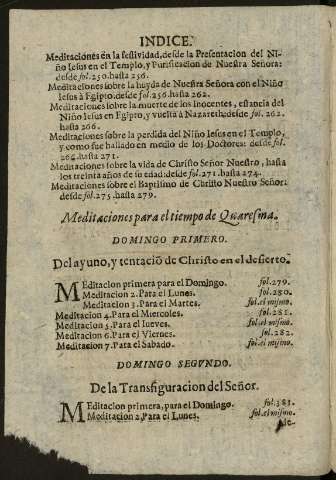 INDICE.
Meditaciones en la festividad, desde la Presentacion del Ni-
ño Iesus en el Templo, y Purificacion de Nuestra Señora:
desde fol. 250. hasta 256.
Meditaciones sobre la huyda de Nuestra Señora con el Niño
Iesus à Egipto, desde fol. 256. hasta 262.
Meditaciones sobre la muerte de los Inocentes, estancia del
Niño Iesus en Egipto, y vuelta à Nazareth, desde fol. 262.
hasta 266.
Meditaciones sobre la perdida del Niño Iesus en el Templo,
y como fue hallado en medio de los Doctores: desde fol.
264. hasta 271.
Meditaciones sobre la vida de Christo Señor Nuestro, hasta
los treinta años de su edad: desde fol. 271. hasta 274.
Meditaciones sobre el Baptismo de Christo Nuestro Señor:
desde fol. 275. hasta 279.
Meditaciones para el tiempo de Quaresma.
DOMINGO PRIMERO.
Del ayuno, y tentaciō de Christo en el desierto.
MEditacion primera para el Domingo. fol. 279.
Meditacion 2. Para el Lunes. fol. 280.
Meditacion 3. Para el Martes. fol. el mismo.
Meditacion 4. Para el Miercoles. fol. 281.
Meditacion 5. Para el Iueves. fol. el mismo.
Meditacion 6. Para el Viernes. fol. 282.
Meditacion 7. Para el Sabado. fol. el mismo.
DOMINGO SEGVNDO.
De la Transfiguracion del Señor.
MEditacion primera, para el Domingo. fol. 383.
Meditacion 2. Para el Lunes. fol. el mismo.